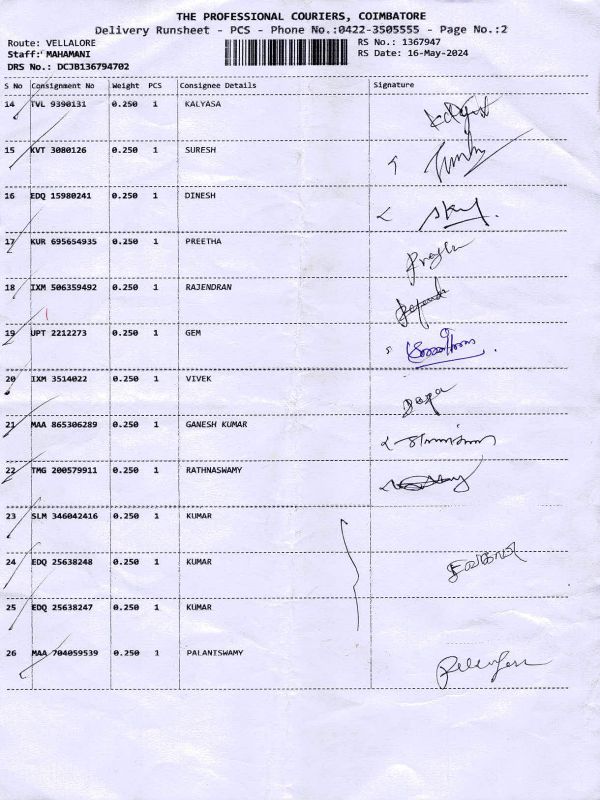 THE PROFESSIONAL COURIERS, COIMBATORE
Delivery Runsheet - PCS - Phone No.:0422-3505555 - Page No.:2
Route: VELLALORE RS No.: 1367947
Staff: MAHAMANI RS Date: 16-May-2024
DRS No.: DCJB136794702
S No Consignment No Weight PCS Consignee Details Signature
14 TVL 9390131 0.250 1 KALYASA
15 KVT 3080126 0.250 1 SURESH
16 EDQ 15980241 0.250 1 DINESH
17 KUR 695654935 0.250 1 PREETHA
18 IXM 506359492 0.250 1 RAJENDRAN
19 UPT 2212273 0.250 1 GEM
20 IXM 3514022 0.250 1 VIVEK
21 MAA 865306289 0.250 1 GANESH KUMAR
22 TMG 200579911 0.250 1 RATHNASWAMY
23 SLM 346042416 0.250 1 KUMAR
24 EDQ 25638248 0.250 1 KUMAR
25 EDQ 25638247 0.250 1 KUMAR
26 MAA 704059539 0.250 1 PALANISWAMY